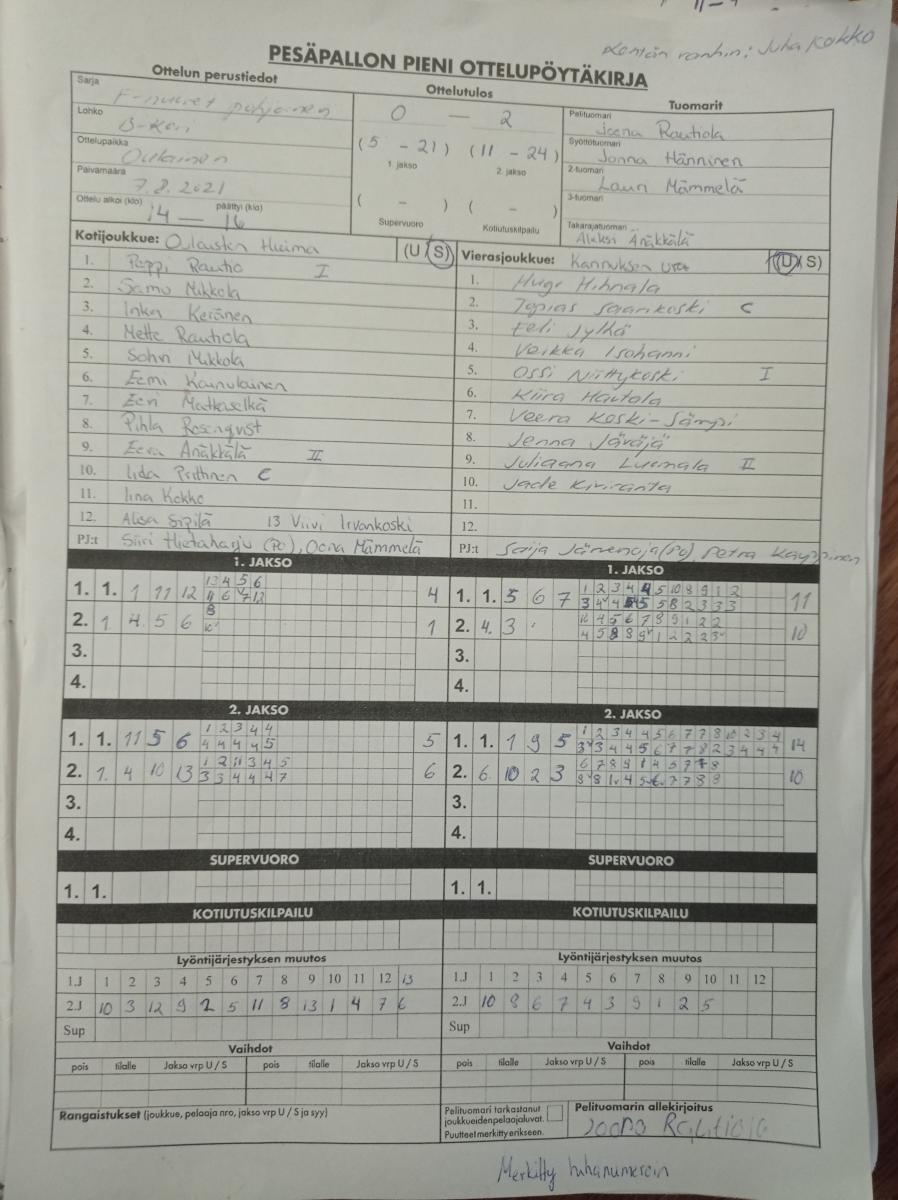 Juha Kokko
PESÄPALLON PIENI OTTELUPÖYTÄKIRJA
Ottelun perustiedot
Ottelutulos
Tuomarit
Sarja
F-nuoret pohjoinen
Lohko
B-
Ottelupaikka
Oulainen
Päivämäärä
7.8.2021
Ottelu alkoi (klo) päättyi (klo)
14 — 16
0 — 2
(5 - 21) (11 - 24)
1. jakso 2. jakso
( - ) ( - )
Supervuoro Kotiutuskilpailu
Pelituomari
Joona Rautiola
Syöttötuomari
Jonna Hänninen
2-tuomari
Lauri Mämmelä
3-tuomari
Takarajatuomari
Aleksi Änäkkälä
Kotijoukkue: Oulaisten Huima (U/S)
1. Peppi Rautio I
2. Samu Mikkola
3. Inka Keränen
4. Mette Rautiola
5. Sohvi Mikkola
6. Eemi Kainulainen
7. Eevi Matkaselkä
8. Pihla Rosenqvist
9. Eeva Änäkkälä II
10. Iida C
11. Iina Kokko
12. Alisa Sipilä 13 Viivi Irvankoski
PJ:t Siiri Hietaharju (PJ), Oona Mämmelä
Vierasjoukkue: Kannuksen Ura (U/S)
1. Hugo Hihnala
2. Topias Saarikoski C
3. Eeli Jylhä
4. Veikka Isohanni
5. Ossi Niittykoski I
6. Kiira Hautala
7. Veera Koski-Sämpi
8. Jenna Järäjä
9. Juliaana Luomala II
10. Jade Kiviranta
11.
12.
PJ:t Saija Järvenoja (PJ), Petra Kauppinen
1. JAKSO
1. 1. 1 11 12 4
13 4 5 6
2. 1 4 5 6 1
8
10
3.
4.
1. JAKSO
1. 1. 5 6 7 11
1 2 3 4 4 5 10 8 9 1 2
2. 4. 3 10
10 4 5 6 7 8 9 1 2 2
3.
4.
2. JAKSO
1. 1. 11 5 6 5
1 2 3 4 4
4 4 4 4 5
2. 1. 4 10 13 6
1 2 11 3 4 5
3 3 4 4 4 7
3.
4.
2. JAKSO
1. 1. 1 9 5 14
1 2 3 4 4 5 6 7 7 8 10 2 3 4
3 3 4 4 5 6 7 7 8 2 3 4 4 4
2. 6. 10 2 3 10
3.
4.
SUPERVUORO
1. 1.
SUPERVUORO
1. 1.
KOTIUTUSKILPAILU
KOTIUTUSKILPAILU
Lyöntijärjestyksen muutos
1.J 1 2 3 4 5 6 7 8 9 10 11 12 13
2.J 10 3 12 9 2 5 11 8 13 1 4 7 6
Sup
Lyöntijärjestyksen muutos
1.J 1 2 3 4 5 6 7 8 9 10 11 12
2.J 10 8 6 7 4 3 9 1 2 5
Sup
Vaihdot
pois tilalle Jakso vrp U / S pois tilalle Jakso vrp U / S
Vaihdot
pois tilalle Jakso vrp U / S pois tilalle Jakso vrp U / S
Rangaistukset (joukkue, pelaaja nro, jakso vrp U / S ja syy)
Pelituomari tarkastanut
joukkueidenpelaajaluvat.
Puutteet merkitty erikseen.
Pelituomarin allekirjoitus
Joona Rautiola
Merkitty